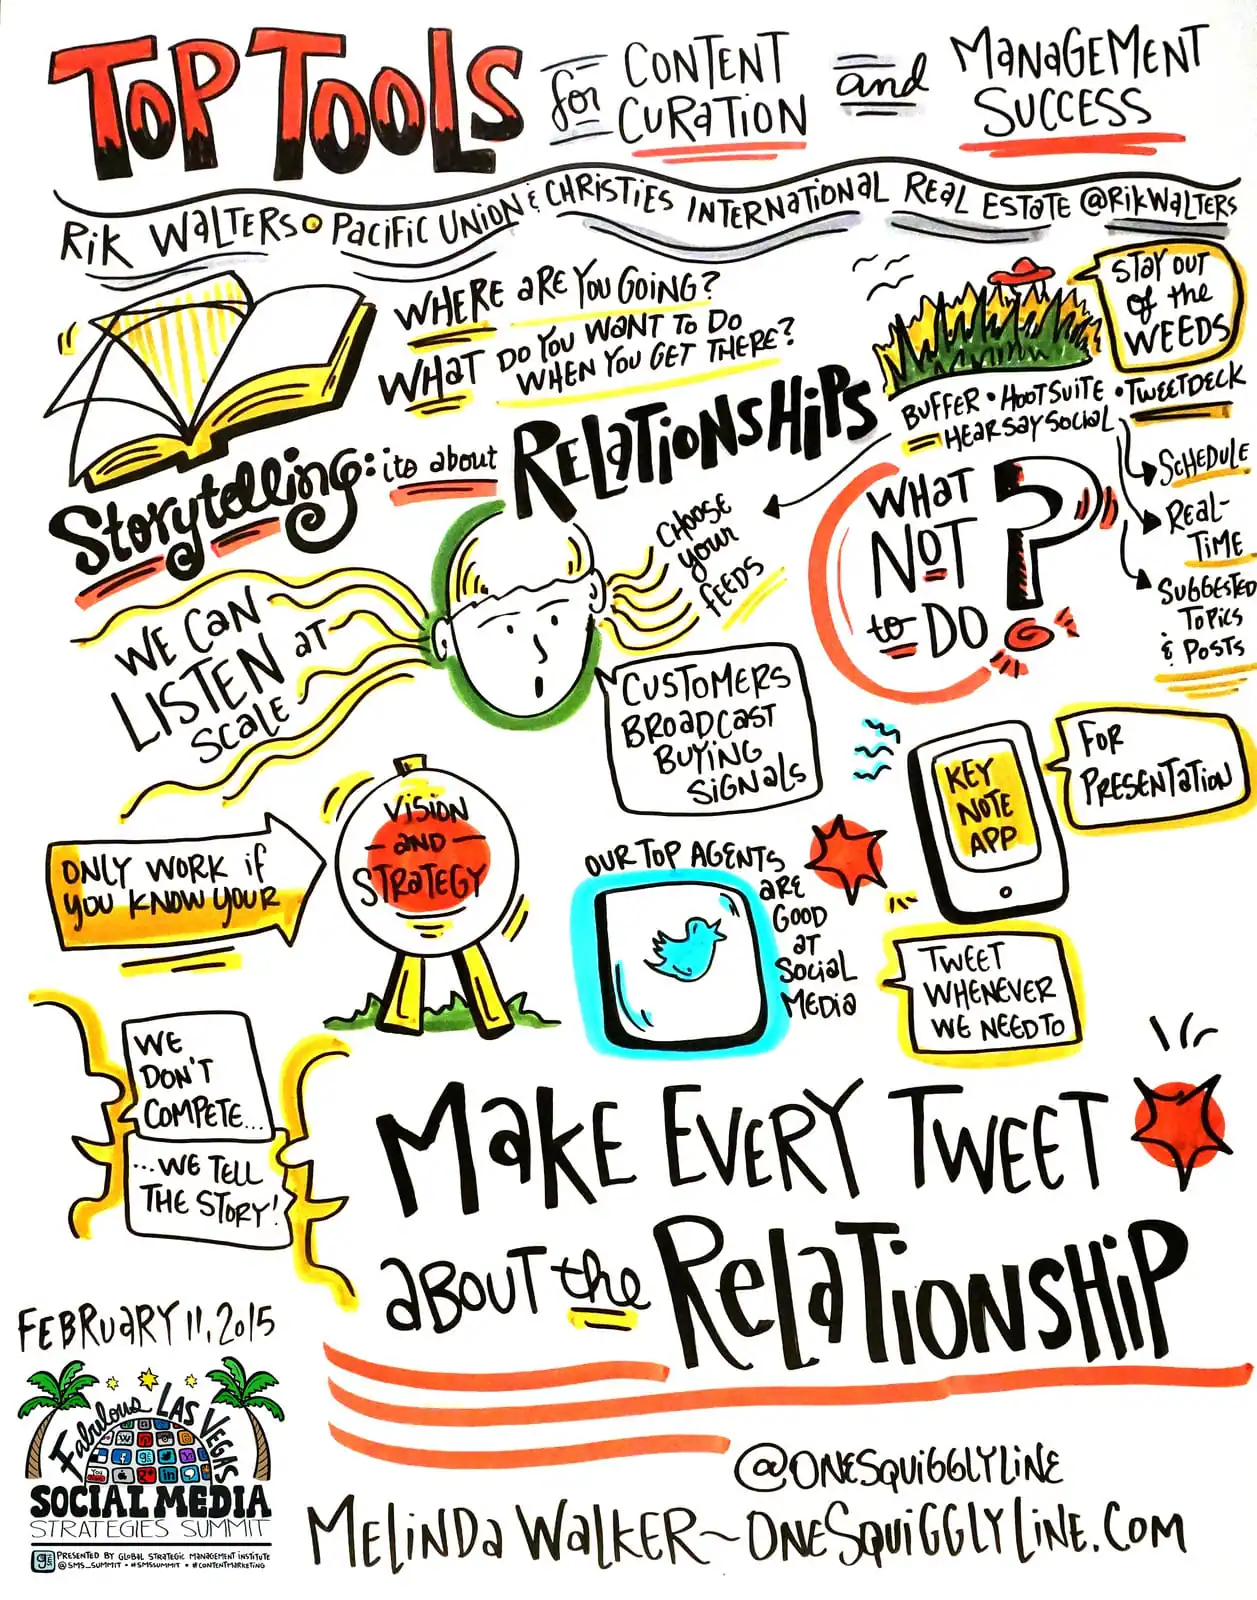 TOP TOOLS for CONTENT CURATION and MANAGEMENT SUCCESS
RIK WALTERS • PACIFIC UNION & CHRISTIES INTERNATIONAL REAL ESTATE @RIKWALTERS
WHERE ARE YOU GOING?
WHAT DO YOU WANT TO DO
WHEN YOU GET THERE?
STAY OUT
of the
WEEDS
BUFFER • HOOTSUITE • TWEETDECK
HEARSAY SOCIAL
SCHEDULE
REAL-
TIME
SUGGESTED
TOPICS
& POSTS
Storytelling: its about RELATIONSHIPS
CHOOSE
your
FEEDS
WHAT
NOT
to DO ?
WE CAN
LISTEN AT
SCALE
CUSTOMERS
BROADCAST
BUYING
SIGNALS
KEY
NOTE
APP
FOR
PRESENTATION
ONLY WORK if
YOU KNOW YOUR
VISION
-AND-
STRATEGY
OUR TOP AGENTS
ARE
GOOD
AT
SOCIAL
MEDIA
TWEET
WHENEVER
WE NEED TO
WE
DON'T
COMPETE...
...WE TELL
THE STORY!
MAKE EVERY TWEET
ABOUT the RELATIONSHIP
FEBRUARY 11, 2015
Fabulous LAS VEGAS
SOCIAL MEDIA
STRATEGIES SUMMIT
PRESENTED BY GLOBAL STRATEGIC MANAGEMENT INSTITUTE
@SMS_SUMMIT • #SMSSUMMIT • #CONTENTMARKETING
@ONESQUIGGLYLINE
MELINDA WALKER~ONESQUIGGLYLINE.COM